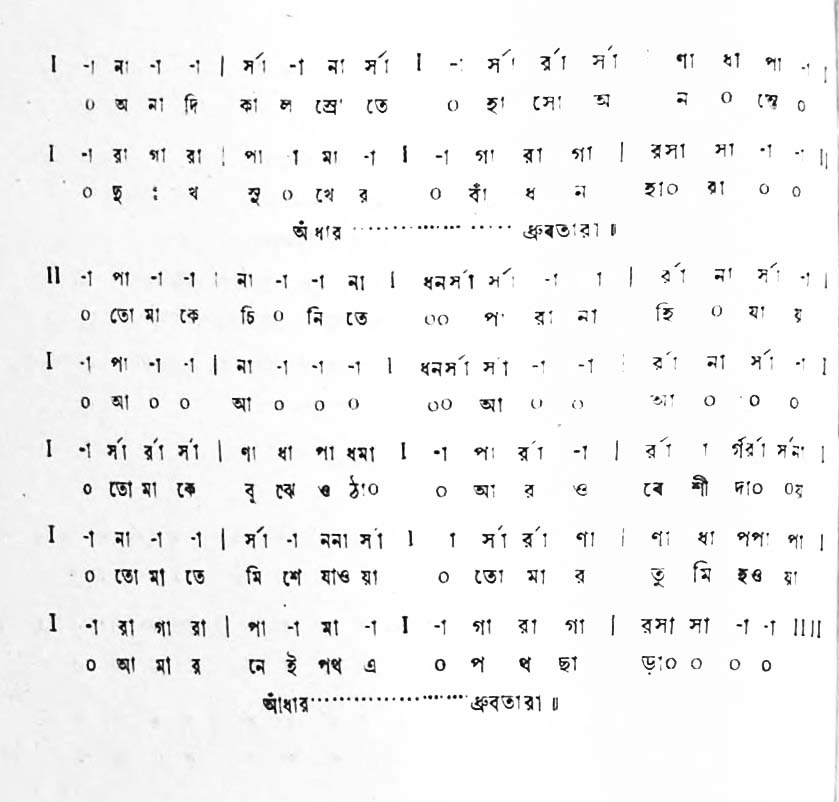 I -া না -া -া | র্সা -া না র্সা I -া র্সা র্রা র্সা | ণা ধা পা -া I
০ অ না দি কা ল স্রো তে ০ হা সো অ ন ০ ন্তে ০
I -া রা গা রা | পা -া মা -া I -া গা রা গা | রসা সা -া -া II
০ দু ঃ খ সু ০ খে র ০ বাঁ ধ ন হা০ রা ০ ০
আঁধার ..................... ধ্রুবতারা ॥
II -া পা -া -া | না -া -া না I ধনর্সা র্সা -া -া | র্রা না র্সা -া I
০ তো মা কে চি ০ নি তে ০০ প রা না হি ০ যা য়
I -া পা -া -া | না -া -া -া I ধনর্সা র্সা -া -া | র্রা না র্সা -া I
০ আ ০ ০ আ ০ ০ ০ ০০ আ ০ ০ আ ০ ০ ০
I -া র্সা র্রা র্সা | ণা ধা পা ধমা I -া পা র্রা -া | র্রা -া র্গর্রা র্সনা I
০ তো মা কে বু ঝে ও ঠা০ ০ আ র ও বে শী দা০ ০য়
I -া না -া -া | র্সা -া ননা র্সা I -া র্সা র্রা ণা | ণা ধা পপা পা I
০ তো মা তে মি শে যাও য়া ০ তো মা র তু মি হও য়া
I -া রা গা রা | পা -া মা -া I -া গা রা গা | রসা সা -া -া IIII
০ আ মা র নে ই পথ এ ০ প থ ছা ড়া০ ০ ০ ০
আঁধার ..................... ধ্রুবতারা ॥